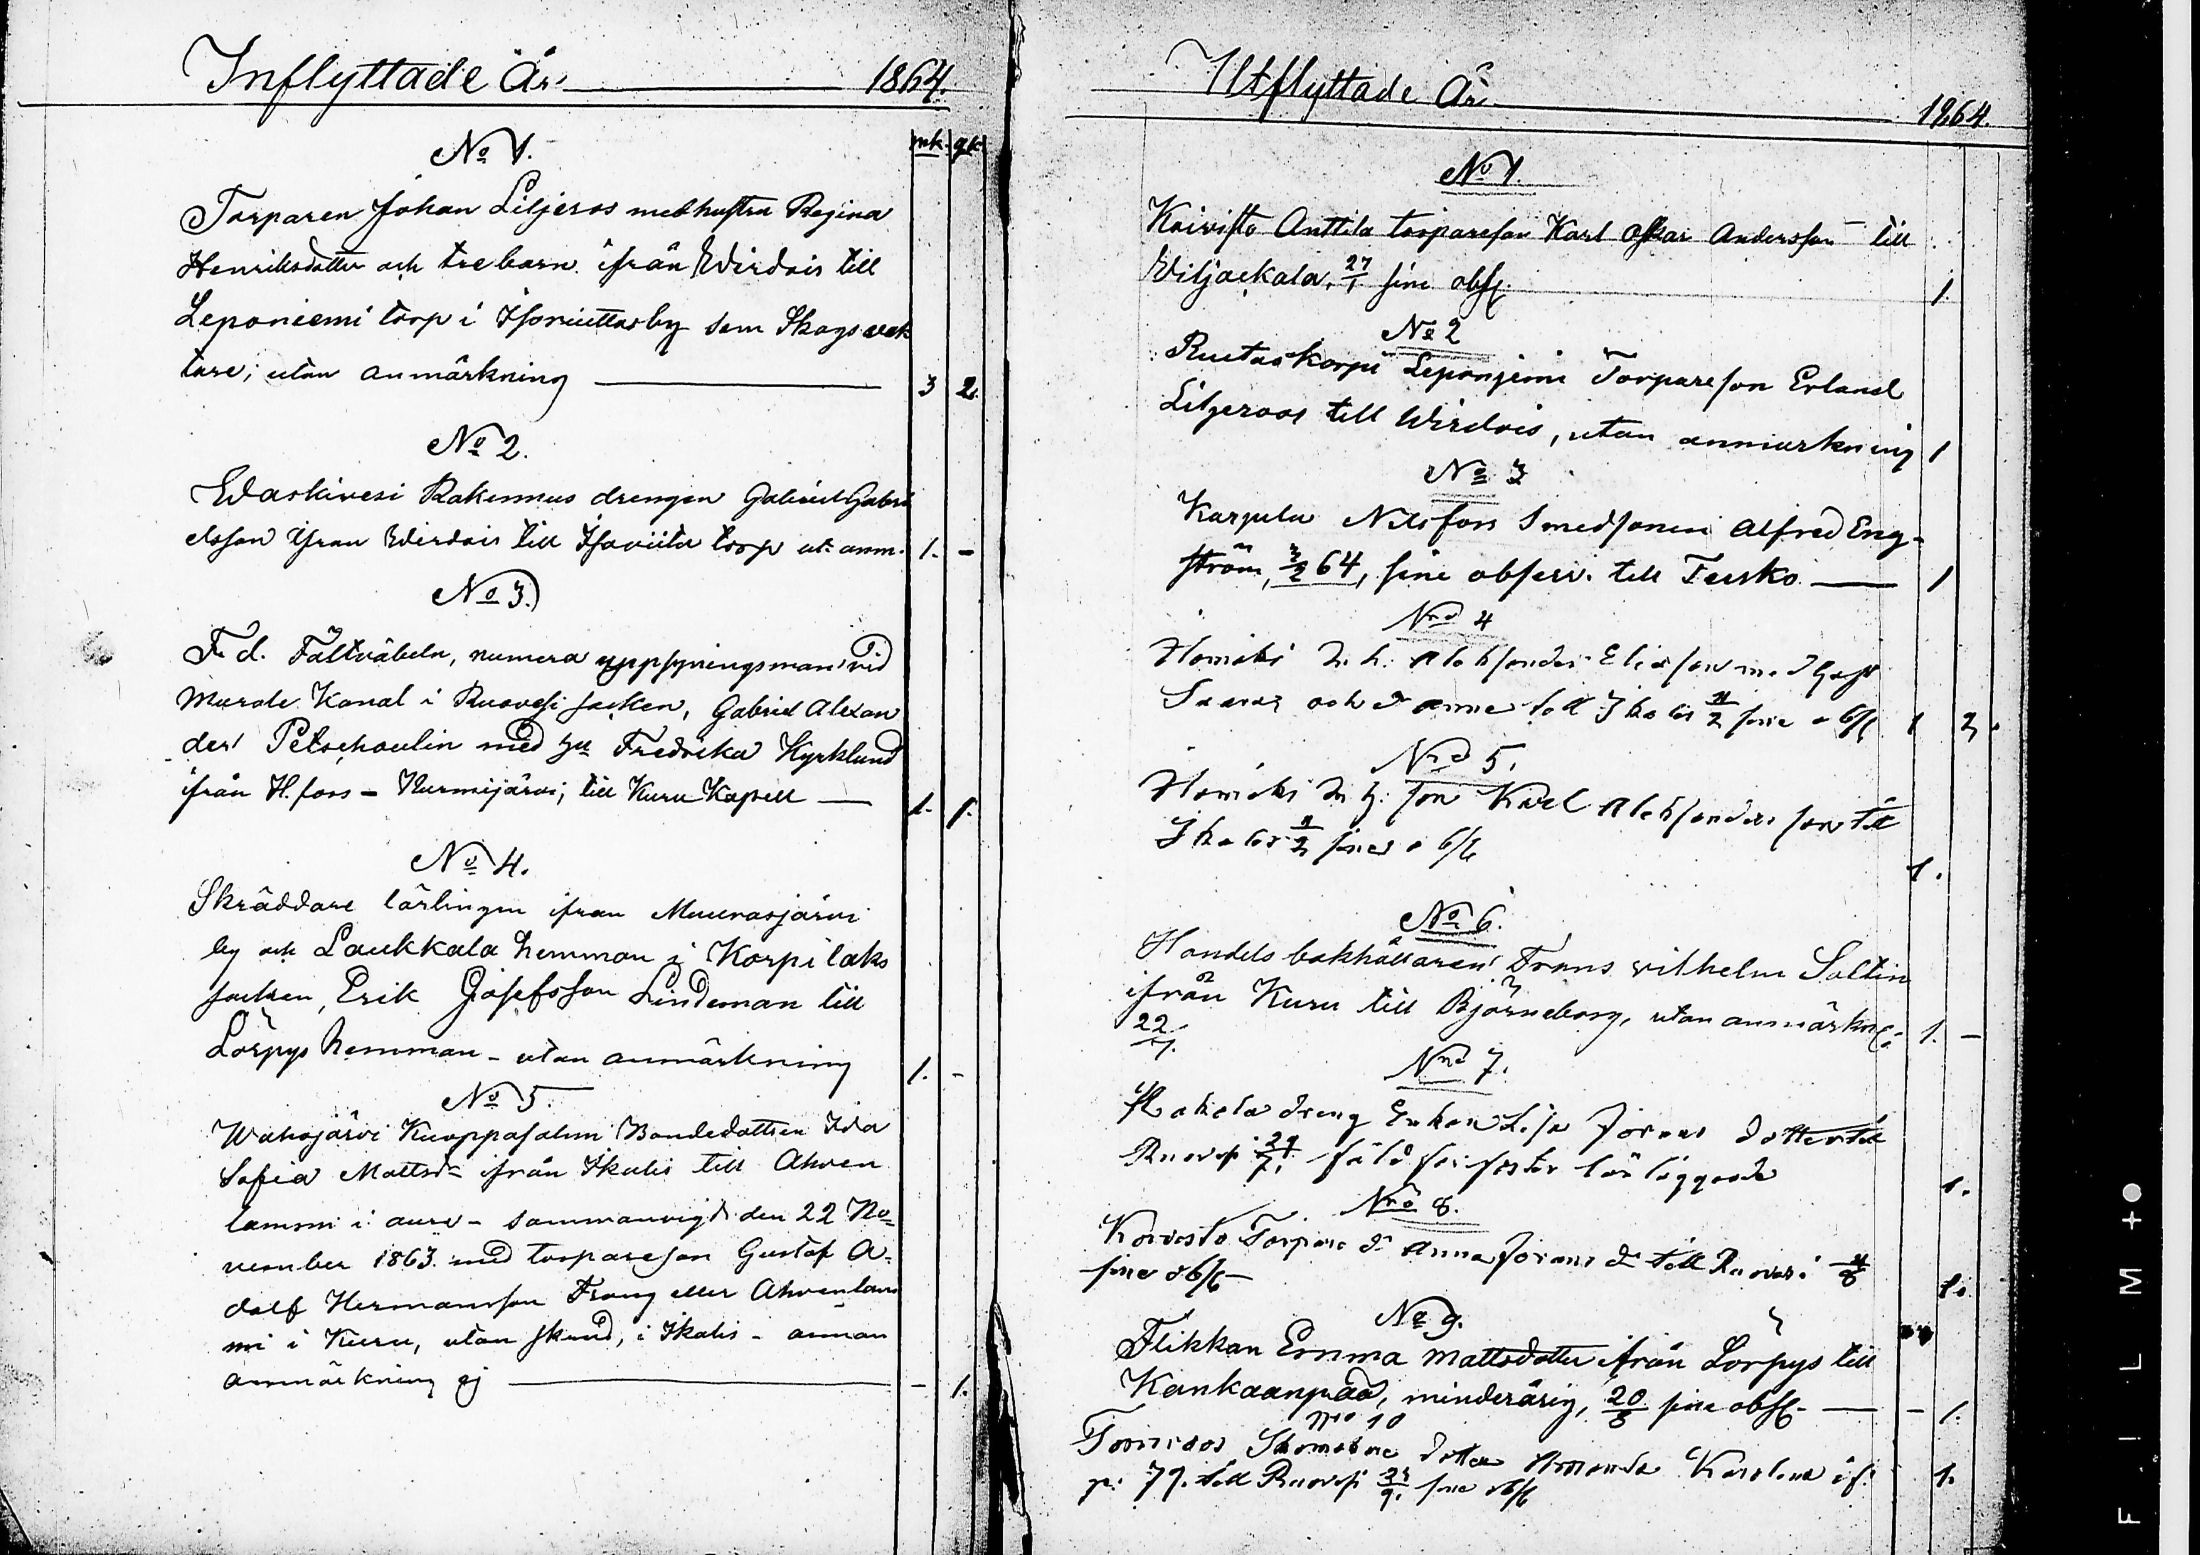 Inflyttade År 1864.
mk. qk.
No 1.
Torparen Johan Liljeros med hustra Regina
Henriksdotter och tre barn ifrån Wirdois till
Leponiemi torp i by som Skogsvak
tare; utan anmärkning 3 2.
No 2.
Waskivesi Rakennus drengen Gabriel Gabri
elsson ifran Wirdois till Isoviita torp ut. anm. 1. -
No 3.
F. d. Fältväbeln, numera uppsyningsman vid
Murole Kanal i Ruovesi socken, Gabriel Alexan
der Petschoulin med hu Fredrika Kyrklund
ifrån H.fors - Nurmijärvi, till Kuru Kapell 1. 1.
No 4.
Skräddare lärlingen ifran Muurasjärvi
by och Laukkala hemman i Korpilaks
socken, Erik Josefsson Lindeman till
Lörpys hemman - utan anmärkning 1. -
No 5.
Wahojärvi Kuoppasalmi Bondedottren Ida
Sofia Mattsd ifrån Ikalis till Ahven
lammi i aure - sammanvigd den 22 No=
vember 1863 med torpareson Gustaf A=
dolf Hermansson Frang eller Ahvenlam
mi i Kuru, utan skund, i Ikalis - annan
anmärkning ej - 1.
Utflyttade År 1864.
No 1.
Koivisto Anttila torpareson Karl Oskar Andersson till
Viljackala, 27/1 sine obs. 1.
No 2
Ruetaskorpi Leponjemi Torpareson Erland
Liljeroos till Wirdois, utan anmärkning 1
No 3
Karpula Nilsfors Smedsonen Alfred Eng-
ström, 3/2 64, sine observ. till Teisko 1
Nro 4
Alexsander Eliasson med hust
Sanna och d anna till Ikalis 11/2 sine obs 1 2.
Nro 5.
son Karl Alexsandersson till
Ikalis 11/2 sine obs 1.
No 6.
Handels bokhållaren Frans vilhelm Saltin
ifrån Kuru till Björneborg, utan anmärkn. 1. -
22/7.
Nro 7.
dreng Enkan Lisa Jorans dotter till
Ruovesi 29/7. fäld för foster läggande 1.
Nro 8.
Koivisto Torpare d Anna Jorans d till Ruovesi 11/8
sine obs 1.
No 9.
Flikkan Emma Mattsdotter ifrån Lörpys till
Kankaanpää, minderårig, 20/8 sine obs. - 1.
Nro 10
dotter Amanda Karolina if.
p. 79. till Ruovesi 29/9. sine obs 1.
FILM